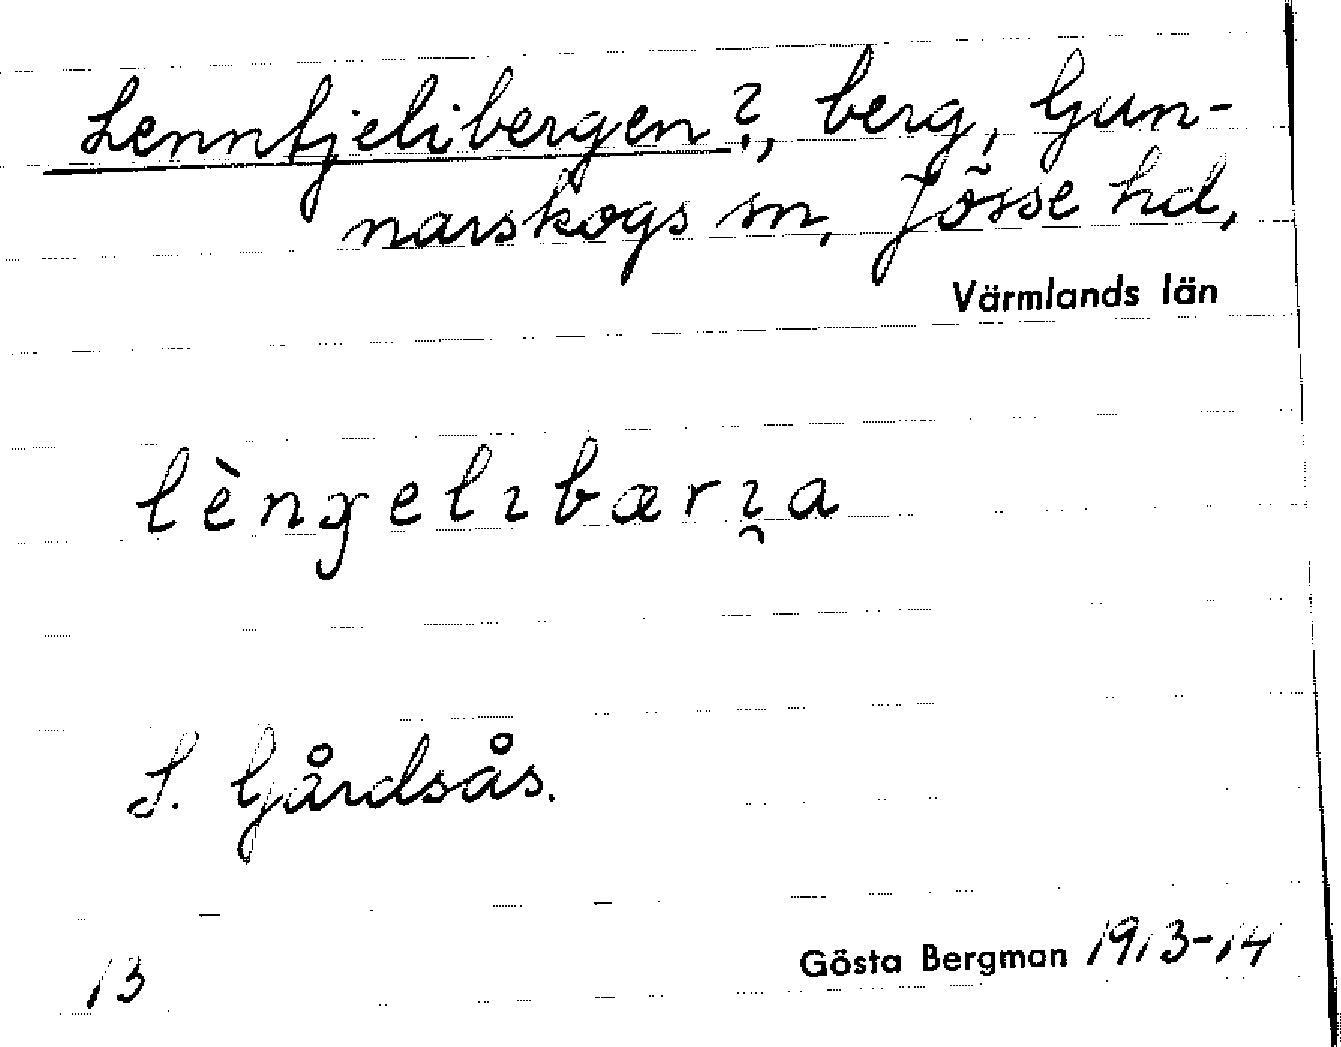 Lennfjelibergen?, berg, Gun-
narskogs sn, Jösse hd,
Värmlands län
lèngelɩbærɩ̯a
S. Gårdsås.
13 Gösta Bergman 1913-14